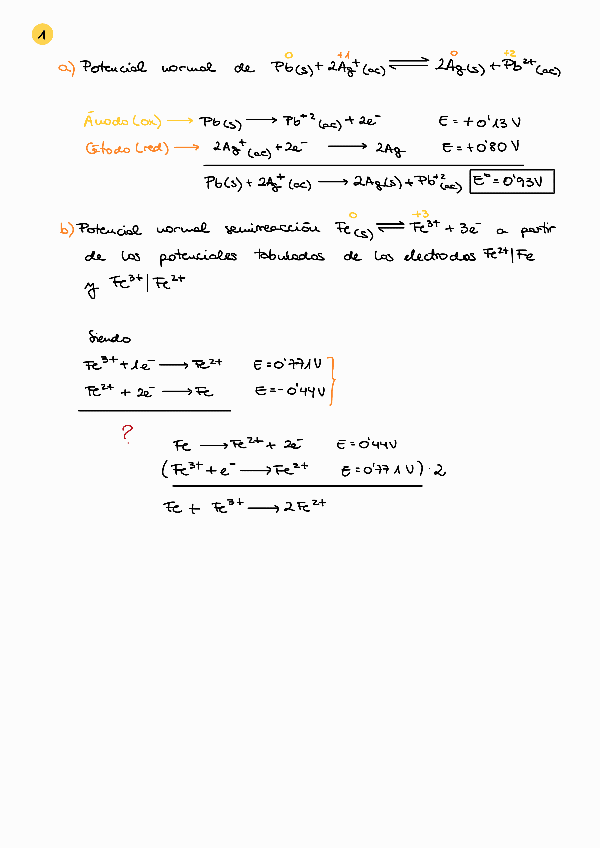 1
a) Potencial normal de Pb(s) + 2Ag⁺(ac) ⇌ 2Ag(s) + Pb²⁺(ac)
0 +1 0 +2
Ánodo (ox) → Pb(s) → Pb⁺²(ac) + 2e⁻ E = +0'13 V
Cátodo (red) → 2Ag⁺(ac) + 2e⁻ → 2Ag E = +0'80 V
Pb(s) + 2Ag⁺(ac) → 2Ag(s) + Pb⁺²(ac) E° = 0'93V
0 +3
b) Potencial normal semirreacción Fe(s) ⇌ Fe³⁺ + 3e⁻ a partir
de los potenciales tabulados de los electrodos Fe²⁺|Fe
y Fe³⁺|Fe²⁺
Siendo
Fe³⁺ + 1e⁻ → Fe²⁺ E = 0'771V
Fe²⁺ + 2e⁻ → Fe E = -0'44V
?
Fe → Fe²⁺ + 2e⁻ E = 0'44V
(Fe³⁺ + e⁻ → Fe²⁺ E = 0'771V) · 2
Fe + Fe³⁺ → 2Fe²⁺